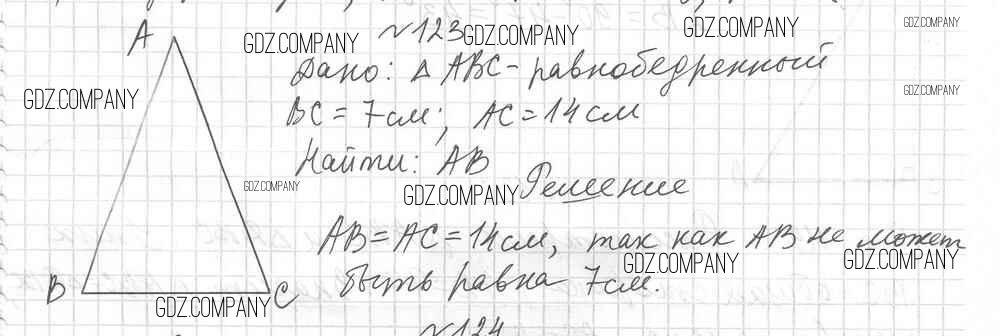 A
GDZ.COMPANY №123 GDZ.COMPANY GDZ.COMPANY GDZ.COMPANY
Дано: Δ ABC - равнобедренный
GDZ.COMPANY GDZ.COMPANY
BC = 7см; AC = 14 см
Найти: AB
GDZ.COMPANY GDZ.COMPANY Решение
AB = AC = 14 см, так как AB не может
GDZ.COMPANY GDZ.COMPANY
B GDZ.COMPANY C быть равна 7 см.
№124